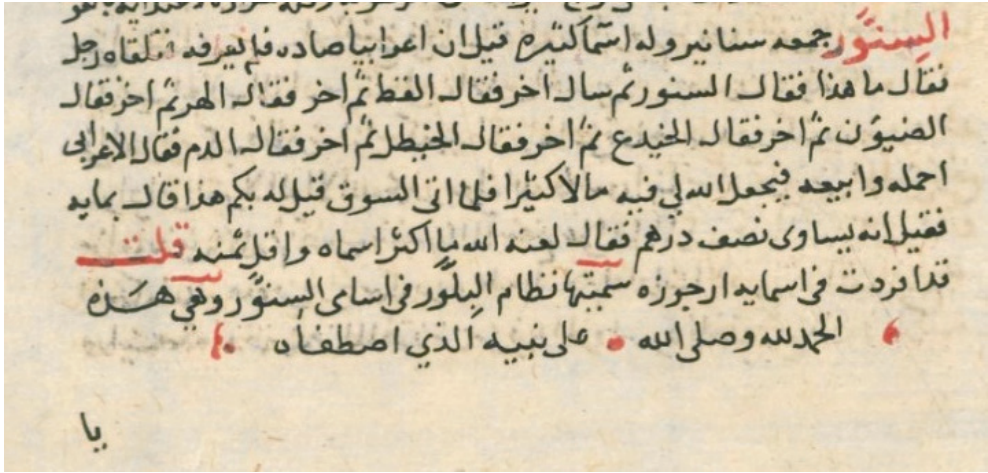 السِنَّوْر جمعه سنانير وله اسّما كثيره قيل ان اعرابيا صاده فلم يعرفه فتلقاه رجل
فقال ما هذا فقال السنور ثم سال اخر فقال القط ثم اخر فقال الهر ثم اخر فقال
الضيؤن ثم اخر فقال الخيدع ثم اخر فقال الخيطل ثم اخر فقال الدم فقال الاعرابى
احمله وابيعه فيجعل الله لي فيه مالا كثيرا فلما اتى السوق قيل له بكم هذا قال بمايه
فقيل انه يساوى نصف درهم فقال لعنه الله ما اكثر اسماه واقل ثمنه قلت
قد افردت فى اسمايه ارجوزه سميتها نظام البِلَّور فى اسامى السنَّور وهي هذه
الحمد لله وصلى الله على نبيه الذي اصطفاه
يا